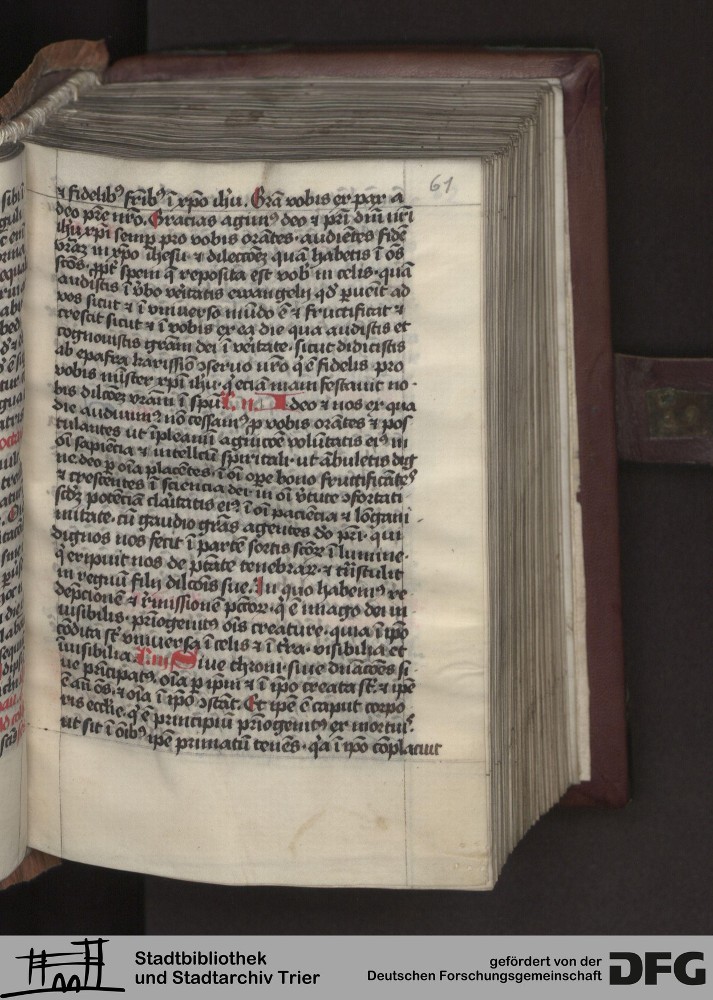 61
⁊ fidelib⁹ frib⁹ ĩ xpo ihu. Gra vobis et pax a
deo pre nro. Gracias agim⁹ deo ⁊ pri dni nri
ihu xpi semp pro vobis orates. audietes fide
vraz in xpo ihesu. ⁊ dilectoez qua habetis ĩ os
scos. ppt spem q reposita est vob in celis. qua
audistis ĩ vbo veritatis ewangelij qd puenit ad
vos sicut ⁊ ĩ vniuerso mudo e ⁊ fructificat ⁊
crescit sicut ⁊ ĩ vobis ex ea die qua audistis et
cognouistis gram dei ĩ veritate. sicut didicistis
ab epafra karissio ɔseruo nro q e fidelis pro
vobis mister xpi ihu. q ecia manifestauit no
bis dilcoez vram ĩ spu deo ⁊ nos ex qua
die audiuim⁹ no cessam⁹ p vobis orates ⁊ pos
tulantes ut ĩpleamĩ agnicoe volutatis ei⁹ in
oi sapiecia ⁊ intellectu spiritali. ut abuletis dig
ne deo p oia placetes. ĩ oi ope bono fructificates
⁊ crescentes ĩ sciencia dei in oi vtute ɔfortati
scdz potecia claritatis ei⁹ ĩ oi paciecia ⁊ logani
mitate. cu gaudio gras agentes do pri. qui
dignos nos fecit ĩ parte sortis scor ĩ lumine.
q eripuit nos de ptate tenebrar. ⁊ trastulit
in regnu filij dilcois sue. In quo habem⁹ re
depcione ⁊ remissione pctor. q e imago dei in
uisibilis. priogenit⁹ ois creature. quia ĩ ipo
codita st vniuersa ĩ celis ⁊ ĩ tra. visibilia et
inuisibilia Siue throni. siue dnacoes si
ue pricipat⁹. oia p ipm ⁊ ĩ ipo creata st. ⁊ ipe
e an os. ⁊ oia ĩ ipo ɔstat. Et ipe e caput corpo
ris ecclie. q e principiu priogenit⁹ ex mortuis.
ut sit ĩ oib⁹ ipe primatu tenes. qa ĩ ipo coplacuit
Stadtbibliothek
und Stadtarchiv Trier
gefördert von der
Deutschen Forschungsgemeinschaft
DFG